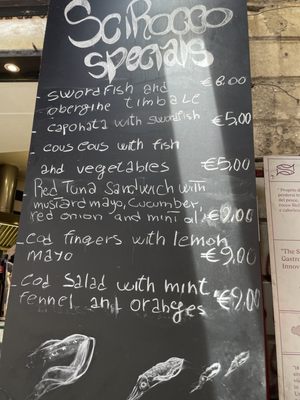 SciRocco
specials
- swordfish and €6.00
obergine timbale
- caponata with swordfish €5,00
cous cous with fish
and vegetables €5,00
Red Tuna Sandwich with
mustard mayo, Cucumber,
red onion and mint oil €9,00
- cod fingers with lemon
mayo €9,00
- cod salad with mint,
fennel and oranges €9,00